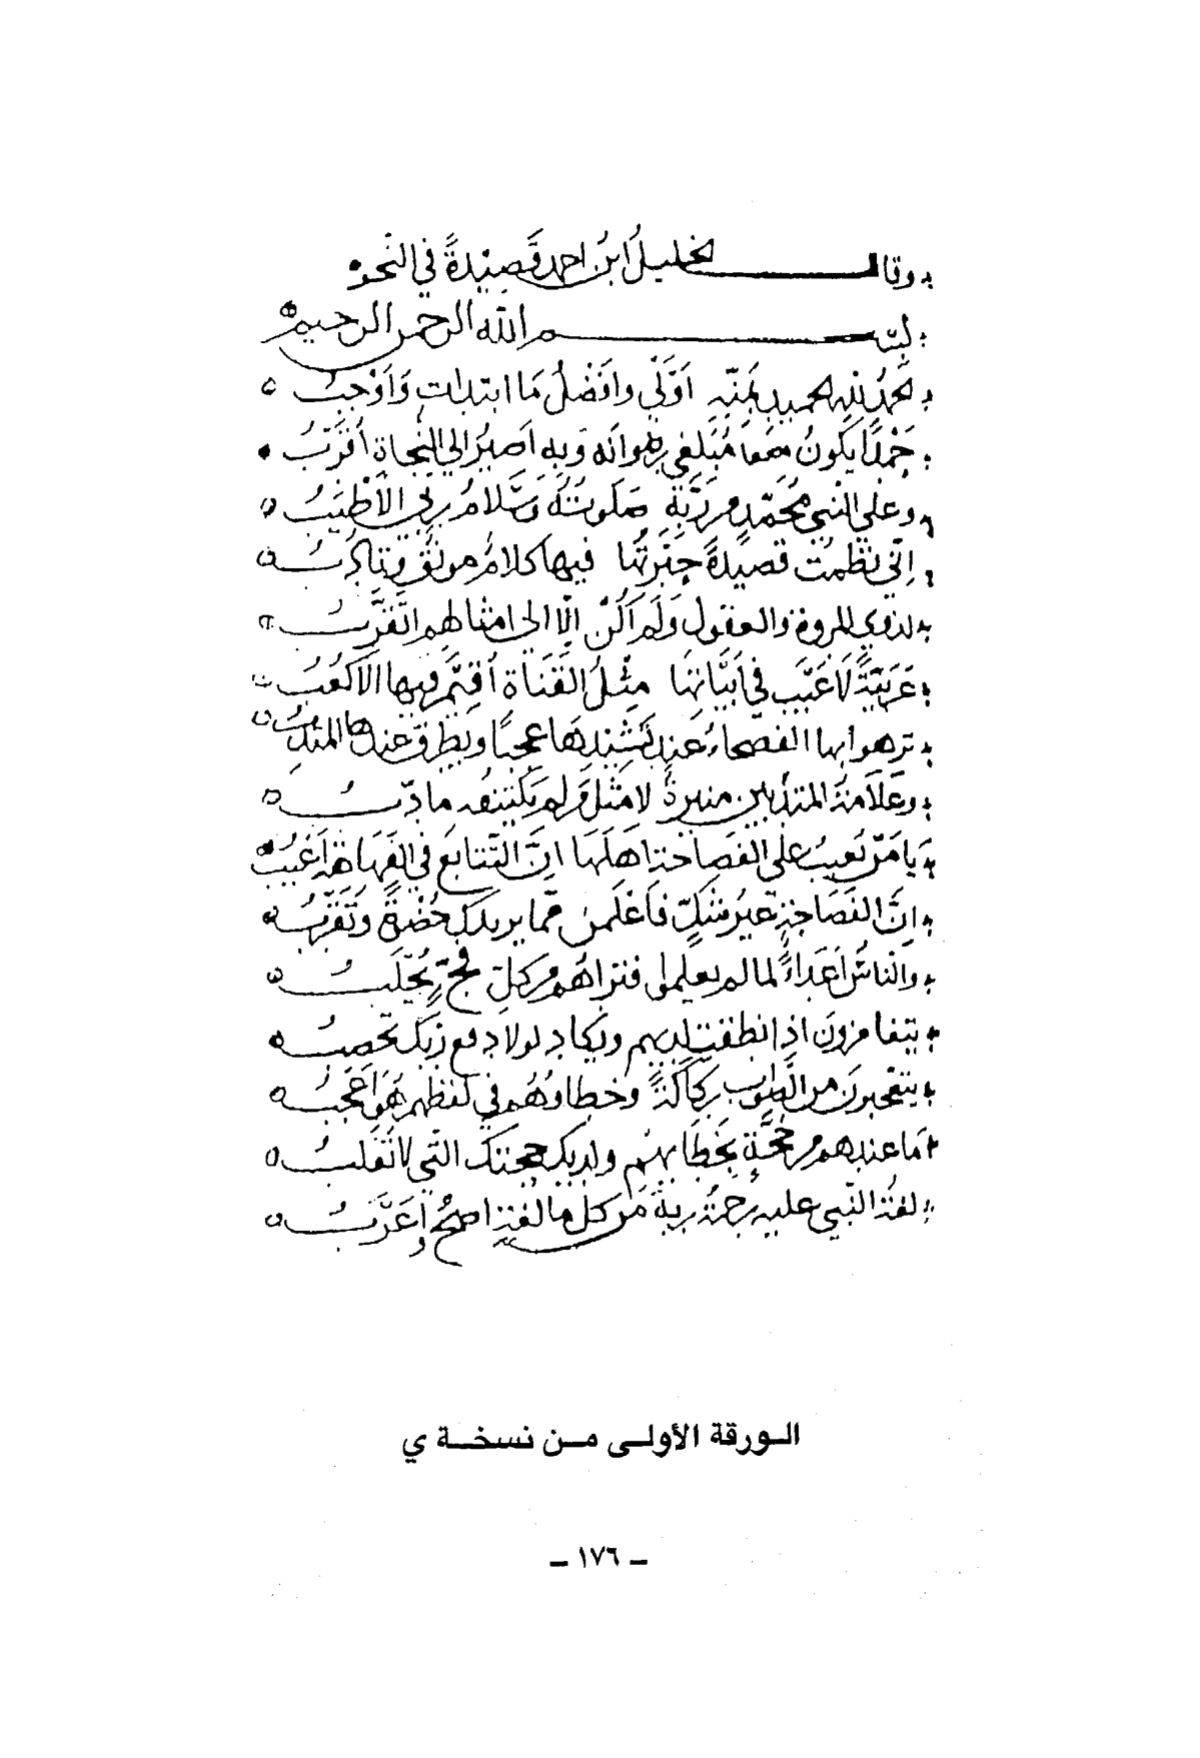 وقال الخليل ابن احمد قصيدةً في النحو
بسم الله الرحمن الرحيم
الحمدُ لله الحميدِ بمَنّه اَوْلَى وافْضلُ مَا ابتدات وَاَوْجبُ
حَمْدًا يكونُ مُبَلّغي رضوانه وَبه اصيرُ الى النجاة اُقَرَّبُ
وعلى النبي مُحمّدٍ من رَبّه صَلَوتُهُ وسَلامُ ربي الاَطْيَبُ
اِنّي نظمتُ قصيدةً حبّرتُها فيها كلامُ مونقٌ وتأدّبُ
لذوي المروة والعقول وَلَم اَكُنْ اِلّا الى امثالهم اتقَرَّبُ
عَربيّةً لَا عَيْبَ في اَبياتها مِثْلُ القَناة اُقيم فيها الاَكعُبُ
تزهوا بها الفصحاءُ عند نشيدها عجبًا ويطرق عندها المتأدّبُ
وعَلَامَةُ المتأدبين منيرةٌ لا مثل مَن لم يكتنفه مأدّبُ
يَا مَنْ يَعيبُ على الفصاحة اهلَها اِنَّ التتابعَ في الفَهاهة اَعْيَبُ
اِنَّ الفَصَاحة غيرُ شكٍّ فاَعْلَمنْ مما يزيدك حُظْوَةً وتُقَرّبُ
والناسُ اَعداءٌ لما لم يعلموا فتراهُم من كلّ فجّ يُجلَبُ
يتغامزون اذا نطقت لديهم وتكاد لولا دفع ربّك تُحصبُ
يتعجبون من الصَّواب ركاكَةً وخطاؤهُم في لفظهم هُوَ اَعْجَبُ
مَا عندهم من حُجّةٍ بخَطَابهُم ولديك حجتك التي لا تُغْلَبُ
لغةُ النّبي عليه رحمةُ ربه من كل ما لغةٍ اصحُّ واَعرَبُ
الـورقة الأولـى مـن نسخـة ي
ـ ١٧٦ ـ